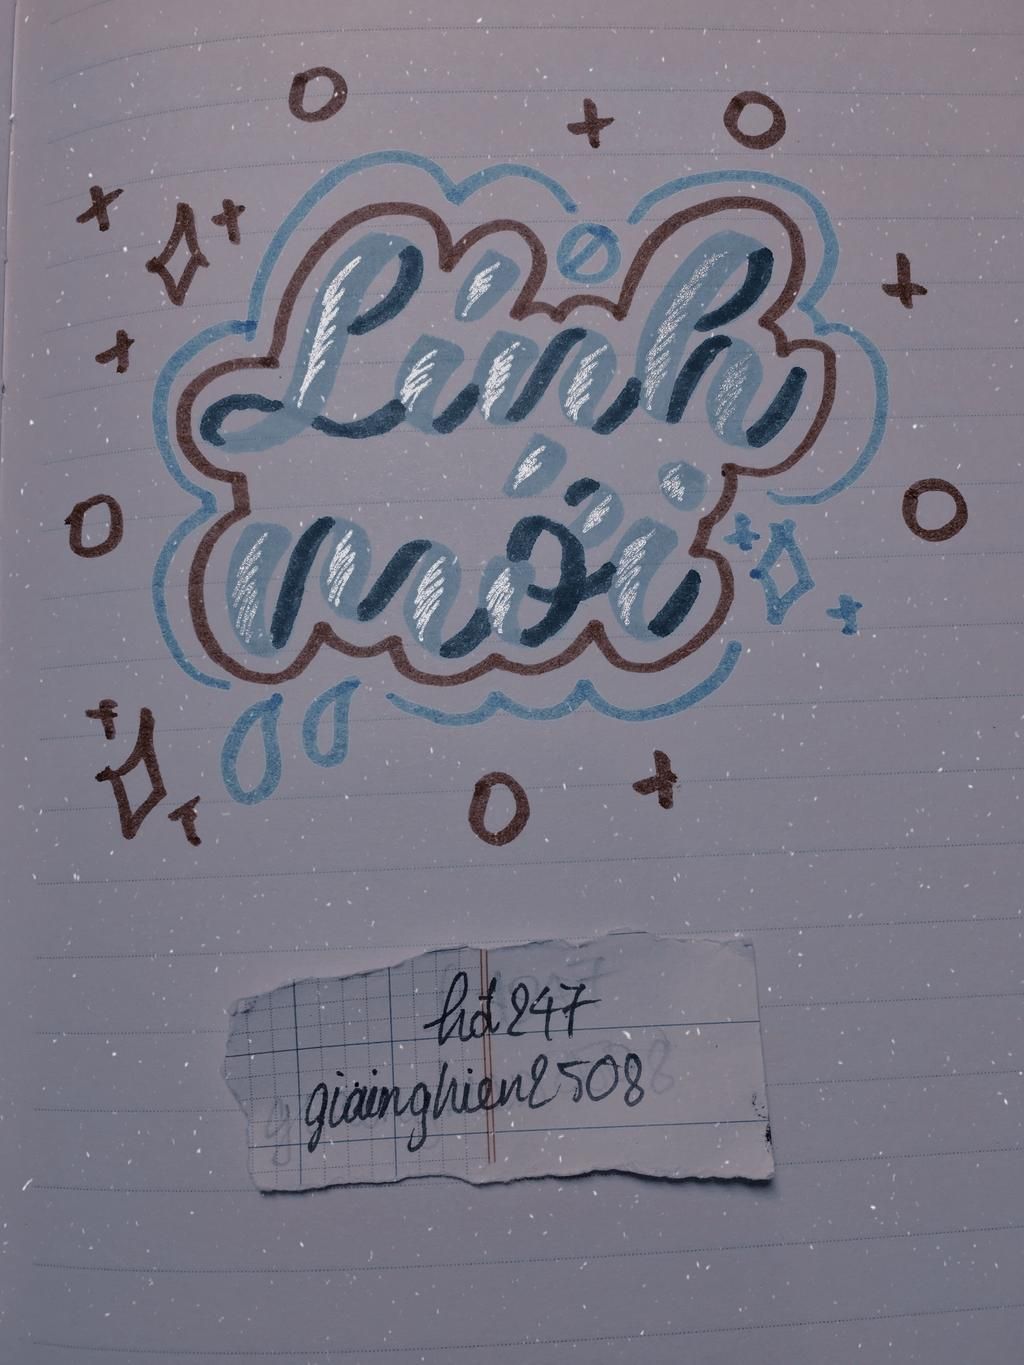 Linh
mới
hd247
giainghien2508